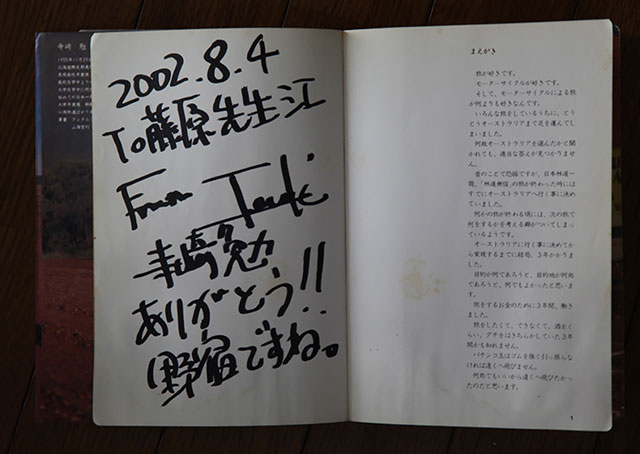 寺崎 勉
2002.8.4
To藤原先生江
From
寺崎勉
ありがとう!!
野宿ですね。
まえがき
旅が好きです。
モーターサイクルが好きです。
そして、モーターサイクルによる旅
が何よりも好きなんです。
いろんな旅をしているうちに、とう
とうオーストラリアまで足を運んでし
まいました。
何故オーストラリアを選んだかと聞
かれても、適当な答えが見つかりませ
ん。
昔のことで恐縮ですが、日本林道一
周、「林道無宿」の旅が終わった時には
すでにオーストラリアへ行く事に決め
ていました。
何かの旅が終わる頃には、次の旅で
何をするかを考える癖がついてしまっ
ているようです。
オーストラリアに行く事に決めてか
ら実現するまでに結局、3年かかりま
した。
目的が何であろうと、目的地が何処
であろうと、何でもよかったと思いま
す。
旅をするお金のために3年間、働き
ました。
旅をしたくて、できなくて、酒をく
らい、グチをはきちらかしていた3年
間かも知れません。
パチンコ玉はゴムを強く引っ張らな
ければ遠くへ飛びません。
何処でもいいから遠くへ飛びたかっ
たのだと思います。
1